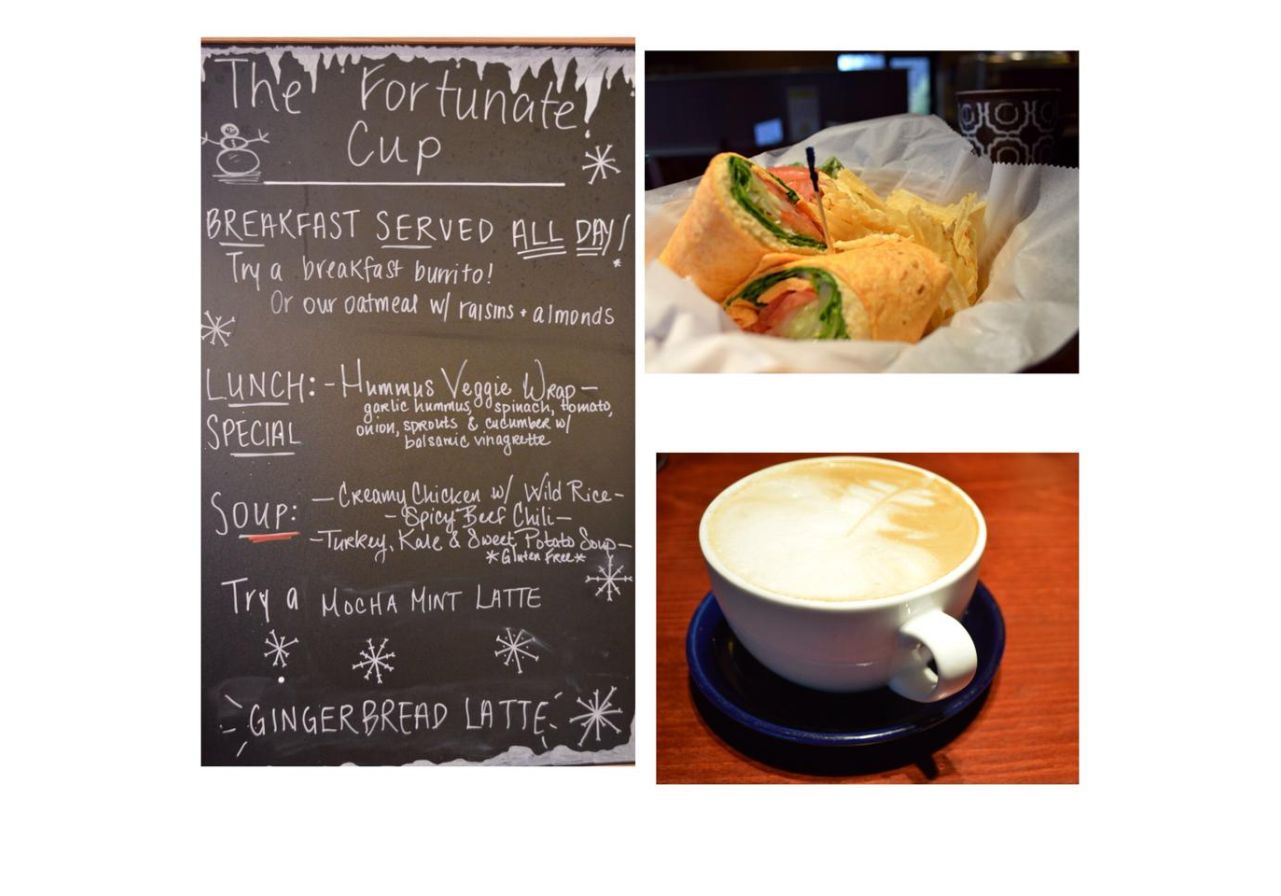 The Fortunate
Cup
BREAKFAST SERVED ALL DAY!
Try a breakfast burrito!
Or our oatmeal w/ raisins + almonds
LUNCH: - Hummus Veggie Wrap -
SPECIAL
garlic hummus, spinach, tomato,
onion, sprouts & cucumber w/
balsamic vinagrette
SOUP:
- Creamy Chicken w/ Wild Rice -
- Spicy Beef Chili -
- Turkey, Kale & Sweet Potato Soup -
*Gluten Free*
Try a MOCHA MINT LATTE
GINGERBREAD LATTE